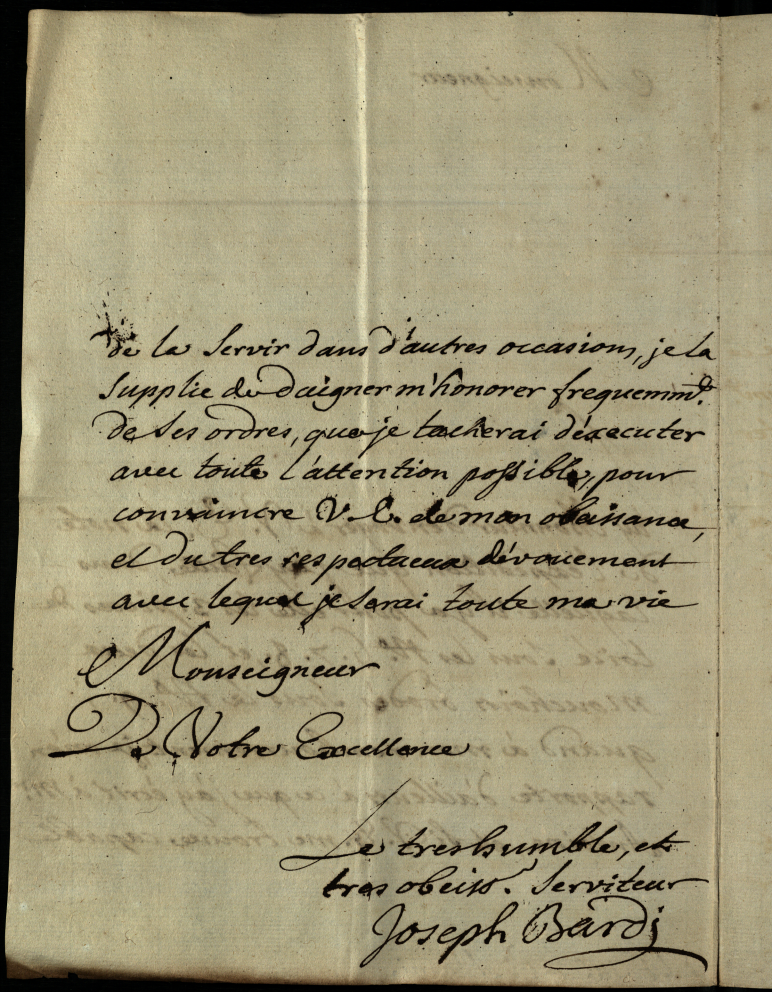 de la Servir dans d'autres occasions, je la
Supplie de daigner m'honorer frequemm.t
de Ses ordres, que je tacherai d'éxecuter
avec toute l'attention possible, pour
convaincre V. E. de mon obeissance,
et du tres respectueux dévouement
avec lequel je Serai toute ma vie
Monseigneur
De Votre Excellence
Le tres humble, et
tres obeiss.t Serviteur
Joseph Bardi